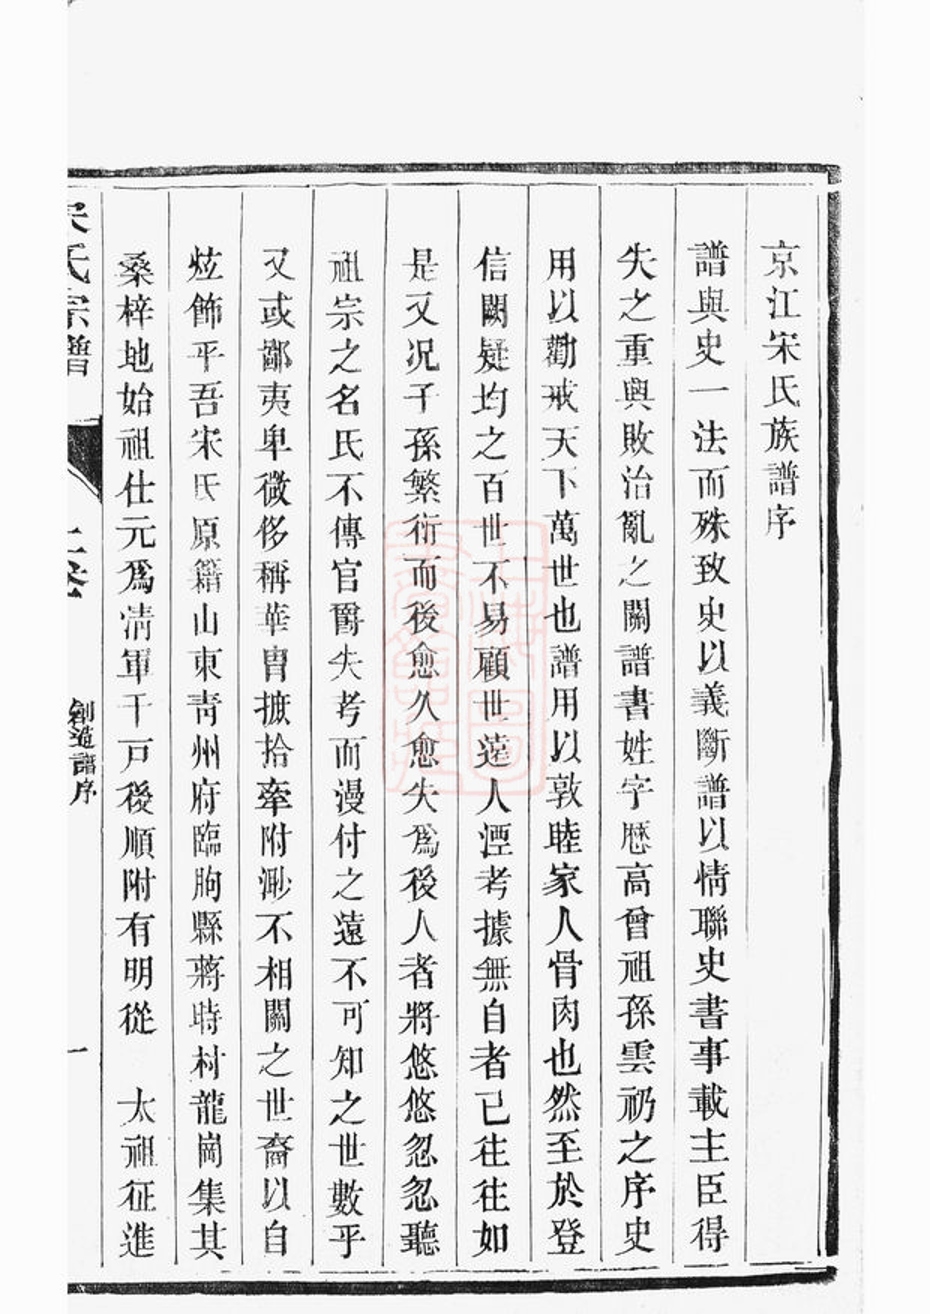 京江宋氏族譜序
譜與史一法而殊致史以義斷譜以情聯史書事載主臣得
失之重與敗治亂之關譜書姓字歷高曾祖孫雲礽之序史
用以勸戒天下萬世也譜用以敦睦家人骨肉也然至於登
信闕疑均之百世不易顧世遠人湮考據無自者已往往如
是又况子孫繁衍而後愈久愈失爲後人者將悠悠忽忽聽
祖宗之名氏不傳官爵失考而漫付之遠不可知之世數乎
又或鄙夷卑微侈稱華胄摭拾牽附渺不相關之世裔以自
炫飾乎吾宋氏原籍山東青州府臨朐縣蔣時村龍崗集其
桑梓地始祖仕元爲清軍千戸後順附有明從　太祖征進
宋氏宗譜
上卷
創造譜序
一